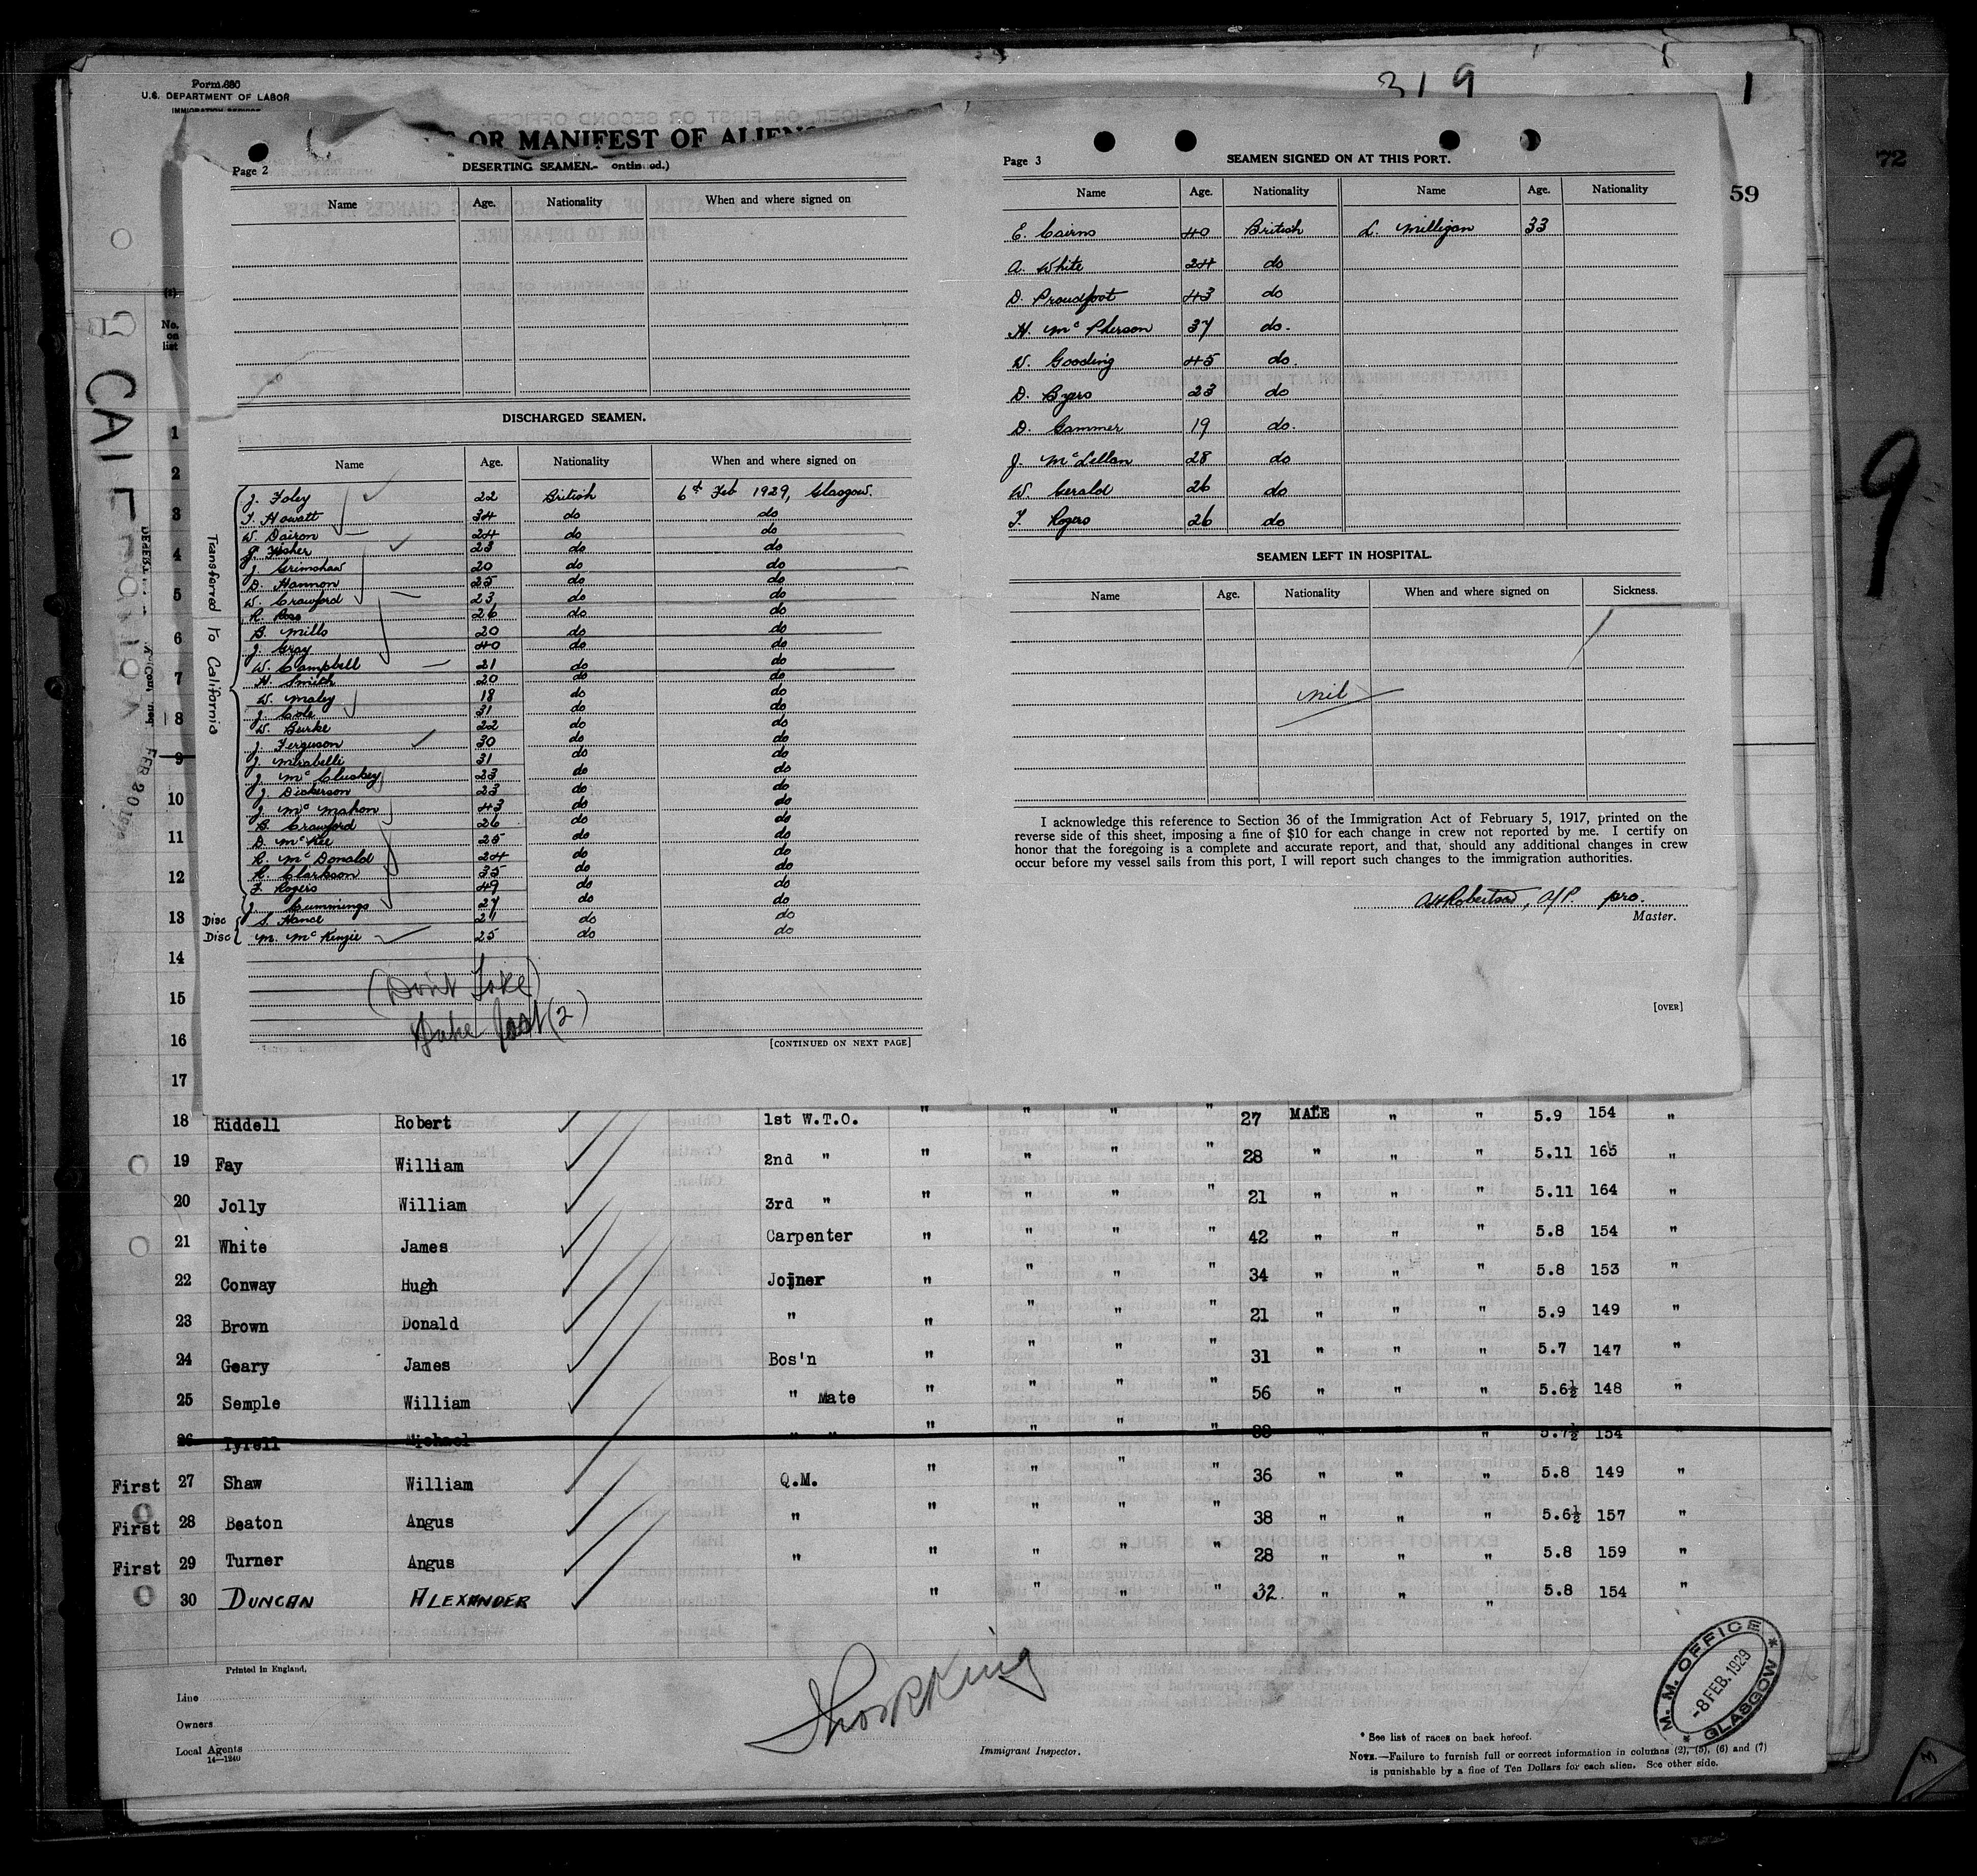 319
1
Form 680
U.S. DEPARTMENT OF LABOR
IMMIGRATION SERVICE
OR MANIFEST OF ALIENS
72
59
9
No. on list
Page 2
DESERTING SEAMEN.- ontin ed.)
Name Age. Nationality When and where signed on
DISCHARGED SEAMEN.
Name Age. Nationality When and where signed on
Transferred to California
J. Foley 22 British 6th Feb 1929, Glasgow.
T. Howatt 34 do do
W. Dairon 24 do do
J. Fisher 23 do do
J. Grimshaw 20 do do
D. Hannon 25 do do
W. Crawford 23 do do
R. Ross 26 do do
B. Mills 20 do do
J. Gray 40 do do
W. Campbell 21 do do
H. Smith 20 do do
W. Maley 18 do do
J. Cole 31 do do
W. Burke 22 do do
J. Ferguson 30 do do
J. Mirabelli 31 do do
J. McCluskey 23 do do
J. Dickerson 23 do do
J. McMahon 43 do do
B. Crawford 26 do do
D. McKee 25 do do
R. McDonald 24 do do
R. Clarkson 35 do do
F. Rogers 49 do do
J. Cummings 27 do do
Disc S. Hance 21 do do
Disc M. McKenzie 25 do do
(Don't Take)
Take last (2)
[CONTINUED ON NEXT PAGE]
Page 3
SEAMEN SIGNED ON AT THIS PORT.
Name Age. Nationality Name Age. Nationality
E. Cairns 40 British L. Milligan 33
A. White 24 do
D. Proudfoot 43 do
H. McPherson 37 do.
W. Gooding 45 do
D. Byers 23 do
D. Gammer 19 do.
J. McLellan 28 do
W. Gerald 26 do
T. Rogers 26 do
SEAMEN LEFT IN HOSPITAL.
Name Age. Nationality When and where signed on Sickness.
nil
I acknowledge this reference to Section 36 of the Immigration Act of February 5, 1917, printed on the
reverse side of this sheet, imposing a fine of $10 for each change in crew not reported by me. I certify on
honor that the foregoing is a complete and accurate report, and that, should any additional changes in crew
occur before my vessel sails from this port, I will report such changes to the immigration authorities.
pro.
Master.
[OVER]
1
2
3
4
5
6
7
8
9
10
11
12
13
14
15
16
17
18 Riddell Robert 1st W.T.O. " " " " 27 MALE " " 5.9 154 "
19 Fay William 2nd " " " " " 28 " " " 5.11 165 "
20 Jolly William 3rd " " " " " 21 " " " 5.11 164 "
21 White James Carpenter " " " " 42 " " " 5.8 154 "
22 Conway Hugh Joiner " " " " 34 " " " 5.8 153 "
23 Brown Donald " " " " " 21 " " " 5.9 149 "
24 Geary James Bos'n " " " " 31 " " " 5.7 147 "
25 Semple William " Mate " " " " 56 " " " 5.6½ 148 "
26 Tyrell Michael " " " " " " 38 " " " 5.7½ 154
First 27 Shaw William Q.M. " " " " 36 " " " 5.8 149 "
First 28 Beaton Angus " " " " " 38 " " " 5.6½ 157 "
First 29 Turner Angus " " " " " 28 " " " 5.8 159 "
30 DUNCAN ALEXANDER " " " " 32. " " " 5.8 154 "
Printed in England.
Line
Owners
Local Agents
14-1240
Immigrant Inspector.
* See list of races on back hereof.
NOTE.—Failure to furnish full or correct information in columns (2), (5), (6) and (7)
is punishable by a fine of Ten Dollars for each alien. See other side.
M.M. OFFICE
-8 FEB. 1929
GLASGOW
3